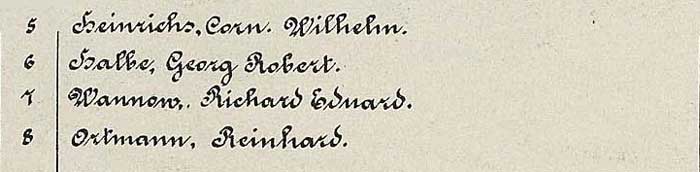 5 Heinrichs, Corn. Wilhelm.
6 Halbe, Georg Robert.
7 Wannow, Richard Eduard.
8 Ortmann, Reinhard.